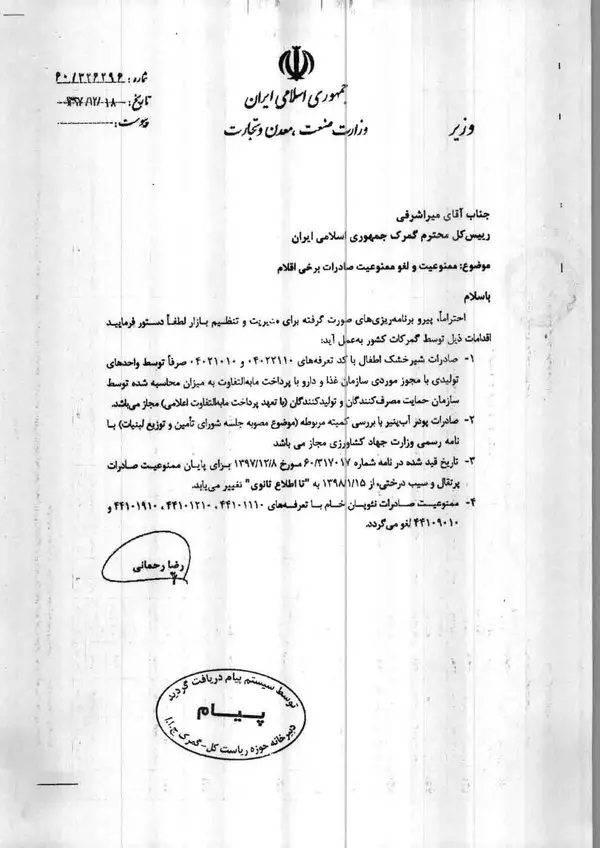 شماره: ۶۰/۳۲۶۲۹۶
تاریخ: ۱۳۹۷/۱۲/۰۱۸
پیوست:
جمهوری اسلامی ایران
وزارت صنعت، معدن و تجارت
وزیر
جناب آقای میراشرفی
رییس‌کل محترم گمرک جمهوری اسلامی ایران
موضوع: ممنوعیت و لغو ممنوعیت صادرات برخی اقلام
باسلام
احتراماً، پیرو برنامه‌ریزی‌های صورت گرفته برای مدیریت و تنظیم بازار لطفاً دستور فرمایید
اقدامات ذیل توسط گمرکات کشور به‌عمل آید:
۱- صادرات شیرخشک اطفال با کد تعرفه‌های ۰۴۰۲۲۱۱۰ و ۰۴۰۲۱۰۱۰ صرفاً توسط واحدهای
تولیدی با مجوز موردی سازمان غذا و دارو با پرداخت مابه‌التفاوت به میزان محاسبه شده توسط
سازمان حمایت مصرف‌کنندگان و تولیدکنندگان (با تعهد پرداخت مابه‌التفاوت اعلامی) مجاز می‌باشد.
۲- صادرات پودر آب‌پنیر با بررسی کمیته مربوطه (موضوع مصوبه جلسه شورای تأمین و توزیع لبنیات) با
نامه رسمی وزارت جهاد کشاورزی مجاز می باشد
۳- تاریخ قید شده در نامه شماره ۶۰/۳۱۷۰۱۷ مورخ ۱۳۹۷/۱۲/۸ برای پایان ممنوعیت صادرات
پرتقال و سیب درختی، از ۱۳۹۸/۱/۱۵ به "تا اطلاع ثانوی" تغییر می‌یابد.
۴- ممنوعیت صادرات نئوپان خام با تعرفه‌های ۴۴۱۰۱۱۱۰ ، ۴۴۱۰۱۲۱۰ ، ۴۴۱۰۱۹۱۰ و
۴۴۱۰۹۰۱۰ لغو می‌گردد.
رضا رحمانی
توسط سیستم پیام دریافت گردید
پیـام
دبیرخانه حوزه ریاست کل-گمرک ج.ا.ا